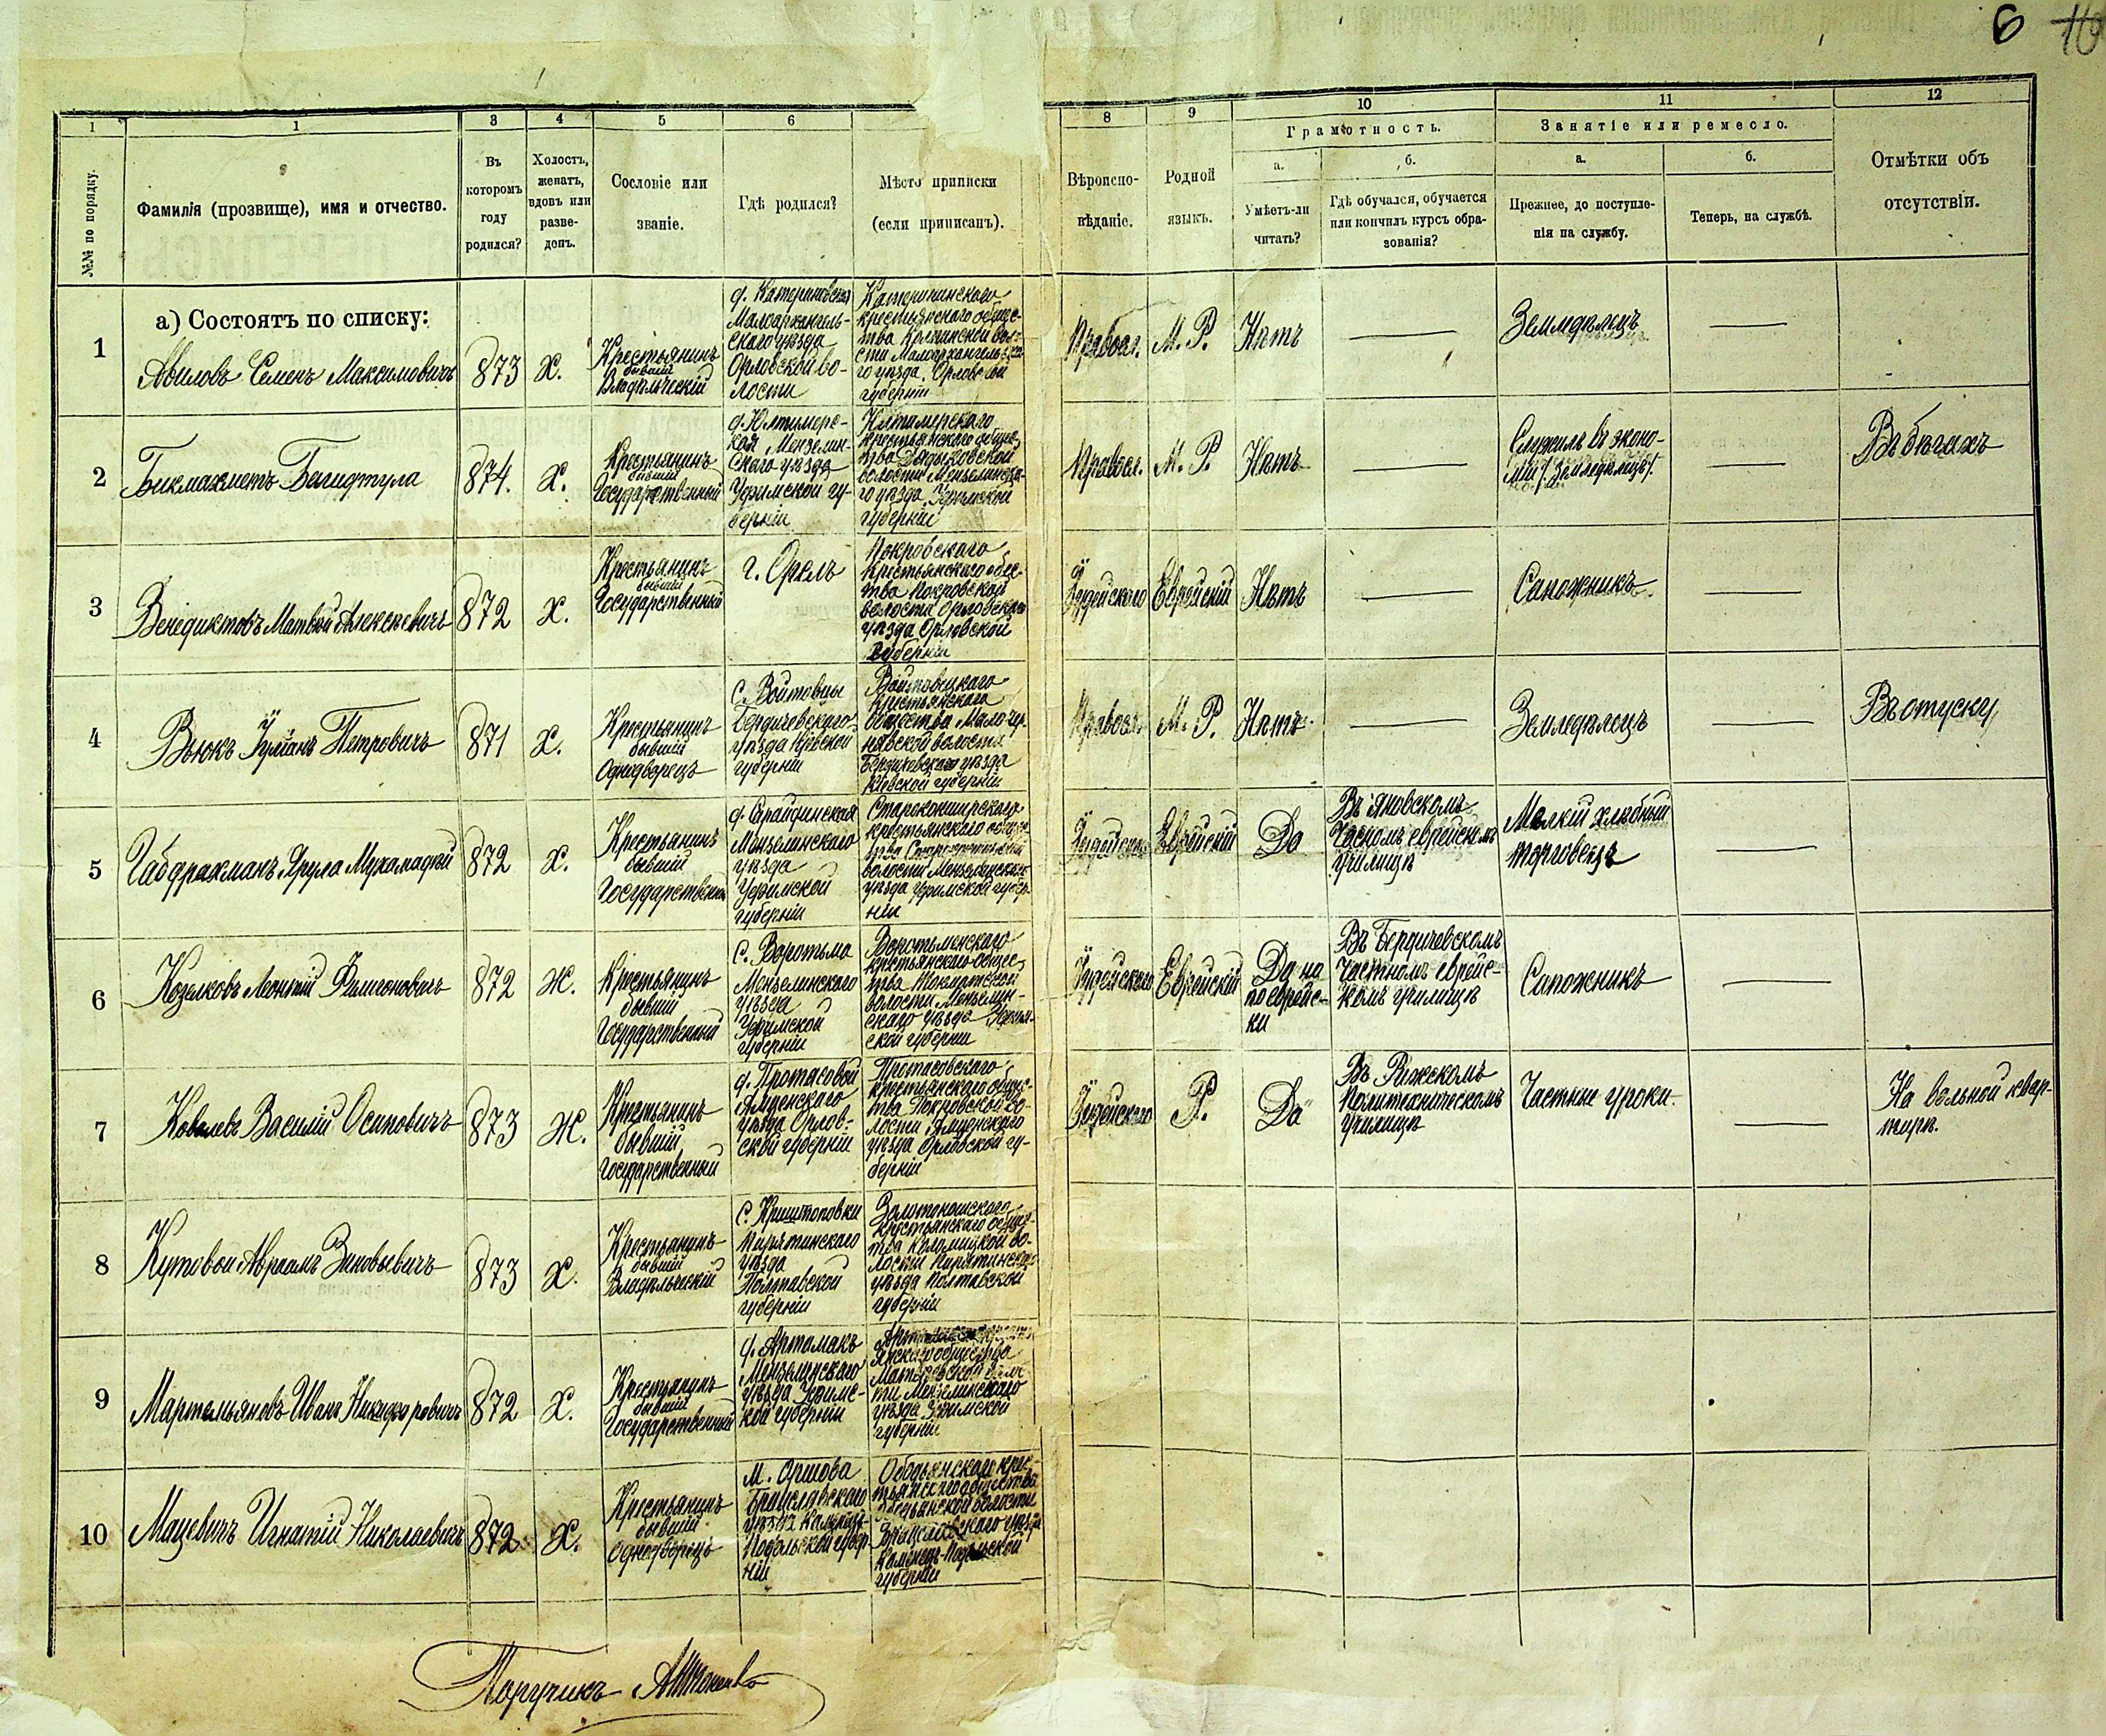 6 16
1 1 3 4 5 6 8 9 10 11 12
№№ по порядку.
Фамилія (прозвище), имя и отчество.
Въ
которомъ
году
родился?
Холостъ,
женатъ,
вдовъ или
разве-
денъ.
Сословіе или
званіе.
Гдѣ родился?
Мѣсто приписки
(если приписанъ).
Вѣроиспо-
вѣданіе.
Родной
языкъ.
Грамотность.
а.
Умѣетъ-ли
читать?
б.
Гдѣ обучался, обучается
или кончилъ курсъ обра-
зованія?
Занятіе или ремесло.
а.
Прежнее, до поступле-
нія на службу.
б.
Теперь, на службѣ.
Отмѣтки объ
отсутствіи.
1
а) Состоятъ по списку:
Авиловъ Семенъ Максимовичъ
873
Х.
Крестьянинъ
бывшій
Владѣльческій
д. Катериновская
Малоархангель-
скаго уѣзда
Орловской во-
лости
Катерининскаго
крестьянскаго общес-
тва
сти Малоархангельска-
го уѣзда Орловской
губерніи
Правосл.
М. Р.
Нѣтъ
Земледѣлецъ
2
Бикмахметъ
874.
Х.
Крестьянинъ
бывшій
Государственный
Мензелин-
скаго уѣзда
Уфимской гу-
берніи
крестьянскаго общес-
тва
волости Мензелинска-
го уѣзда Уфимской
губерніи
Правосл.
М. Р.
Нѣтъ
Служилъ въ эконо-
міи (Земледѣлецъ).
Въ бѣгахъ
3
Венедиктовъ Матвѣй Алексѣевичъ
872
Х.
Крестьянинъ
бывшій
Государственный
г. Орелъ
Покровскаго
крестьянскаго общес-
тва Покровской
волости Орловскаго
уѣзда Орловской
губерніи
Іудейскаго
Еврейскій
Нѣтъ
Сапожникъ
4
Вьюкъ Іуліанъ Петровичъ
871
Х.
Крестьянинъ
бывшій
Однодворецъ
с. Войтовцы
Бердичевскаго
уѣзда Кіевской
губерніи
Войтовецкаго
крестьянскаго
общества
волости
Бердичевскаго уѣзда
Кіевской губерніи
Правосл.
М. Р.
Нѣтъ
Земледѣлецъ
Въ отпуску
5
Габдрахманъ Ярула
872
Х.
Крестьянинъ
бывшій
Государственный
Мензелинскаго
уѣзда
Уфимской
губерніи
крестьянскаго общес-
тва
волости Мензелинскаго
уѣзда Уфимской губер-
ніи
Іудейскаго
Еврейскій
Да
Въ Яновскомъ
еврейскомъ
училищѣ
Мелкій хлѣбный
торговецъ
6
Козелковъ Леонтій
872
Ж.
Крестьянинъ
бывшій
Государственный
с. Воротьма
Мензелинскаго
уѣзда
Уфимской
губерніи
крестьянскаго общес-
тва
волости Мензелин-
скаго уѣзда Уфим-
ской губерніи
Іудейскаго
Еврейскій
Да на
по еврейс-
ки
Въ Бердичевскомъ
Частномъ еврейс-
комъ училищѣ
Сапожникъ
7
Ковалевъ Василій Осиповичъ
873
Ж.
Крестьянинъ
бывшій
Государственный
д. Протасовой
уѣзда Орлов-
ской губерніи
Протасовскаго
крестьянскаго общес-
тва Покровской во-
лости
уѣзда Орловской гу-
берніи
Іудейскаго
Р.
Да
Въ Рижскомъ
Политехническомъ
училищѣ
Частные уроки
На вольной квар-
тирѣ.
8
Кутовой Авраамъ Зиновьевичъ
873
Х.
Крестьянинъ
бывшій
Владѣльческій
с. Криштоповки
Пирятинскаго
уѣзда
Полтавской
губерніи
крестьянскаго общес-
тва во-
лости Пирятинскаго
уѣзда Полтавской
губерніи
9
Мартемьяновъ Иванъ Никифоровичъ
872
Х.
Крестьянинъ
бывшій
Государственный
д. Артамакъ
Мензелинскаго
уѣзда Уфимс-
кой губерніи
общества
ти Мензелинскаго
уѣзда Уфимской
губерніи
10
Мацевичъ Игнатій Николаевичъ
872
Х.
Крестьянинъ
бывшій
однодворецъ
Брацлавскаго
уѣзда
Подольской губер-
ніи
Ободьянскаго крес-
тьянскаго общества
Ободьянской волости
Брацлавскаго уѣзда
Каменецъ-Подольской
губерніи
Поручикъ